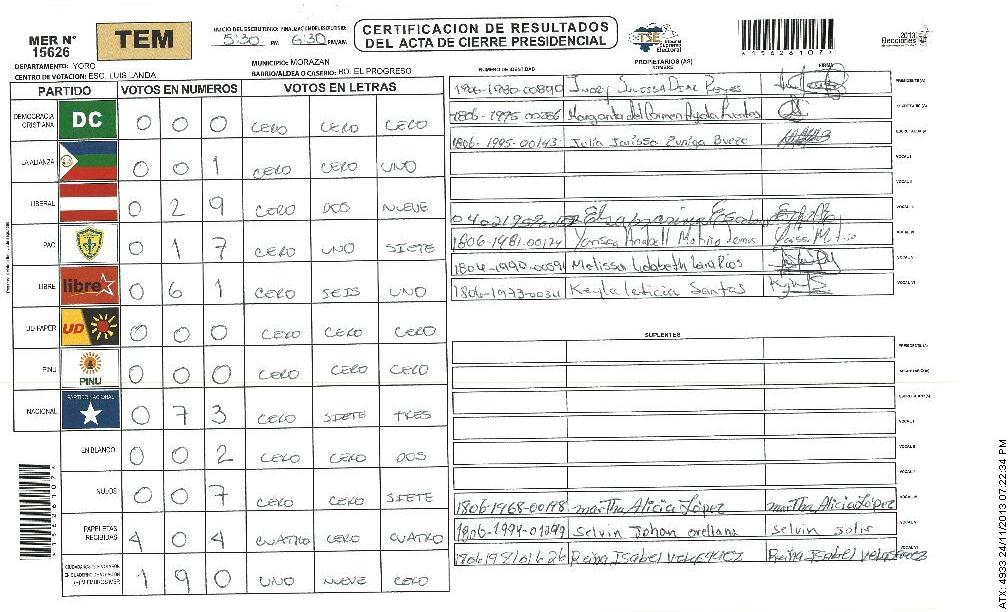 MER N° 15626
TEM
INICIO DEL ESCRUTINIO: 5:30 PM
FINALIZACION DEL ESCRUTINIO: 6:30 PM/AM
CERTIFICACION DE RESULTADOS
DEL ACTA DE CIERRE PRESIDENCIAL
TSE
Tribunal Supremo Electoral
15626107
2013
Elecciones
DEPARTAMENTO: YORO
MUNICIPIO: MORAZAN
CENTRO DE VOTACION: ESC. LUIS LANDA
BARRIO/ALDEA O CASERIO: BO. EL PROGRESO
PARTIDO VOTOS EN NUMEROS VOTOS EN LETRAS
DEMOCRACIA CRISTIANA DC 0 0 0 CERO CERO CERO
LA ALIANZA 0 0 1 CERO CERO UNO
LIBERAL 0 2 9 CERO DOS NUEVE
PAC 0 1 7 CERO UNO SIETE
LIBRE libre 0 6 1 CERO SEIS UNO
UD-FAPER UD 0 0 0 CERO CERO CERO
PINU PINU 0 0 0 CERO CERO CERO
NACIONAL PARTIDO NACIONAL 0 7 3 CERO SIETE TRES
EN BLANCO 0 0 2 CERO CERO DOS
NULOS 0 0 7 CERO CERO SIETE
PAPELETAS RECIBIDAS 4 0 4 CUATRO CERO CUATRO
1 9 0 UNO NUEVE CERO
PROPIETARIOS (AS)
NUMERO DE IDENTIDAD NOMBRE FIRMA
PRESIDENTE(A)
1806-1995-00286 Margarita del Carmen Ayala Fuentes SECRETARIO(A)
1806-1995-00143 Julia Jarissa Zuniga Bueso ESCRUTADOR(A)
VOCAL I
VOCAL II
VOCAL III
1806-1981-00124 VOCAL IV
Melissa VOCAL V
Keyla leticia Santos VOCAL VI
SUPLENTES
PRESIDENTE(A)
SECRETARIO(A)
ESCRUTADOR(A)
VOCAL I
VOCAL II
VOCAL III
1806-1968-00198 martha Alicia López martha Alicia López VOCAL IV
1806-1994-01299 Selvin Johan orellana selvin solis VOCAL V
Reina Isabel VELASQUEZ Reina Isabel VELASQUEZ VOCAL VI
15626107
ATX: 4933 24/11/2013 07:22:34 PM